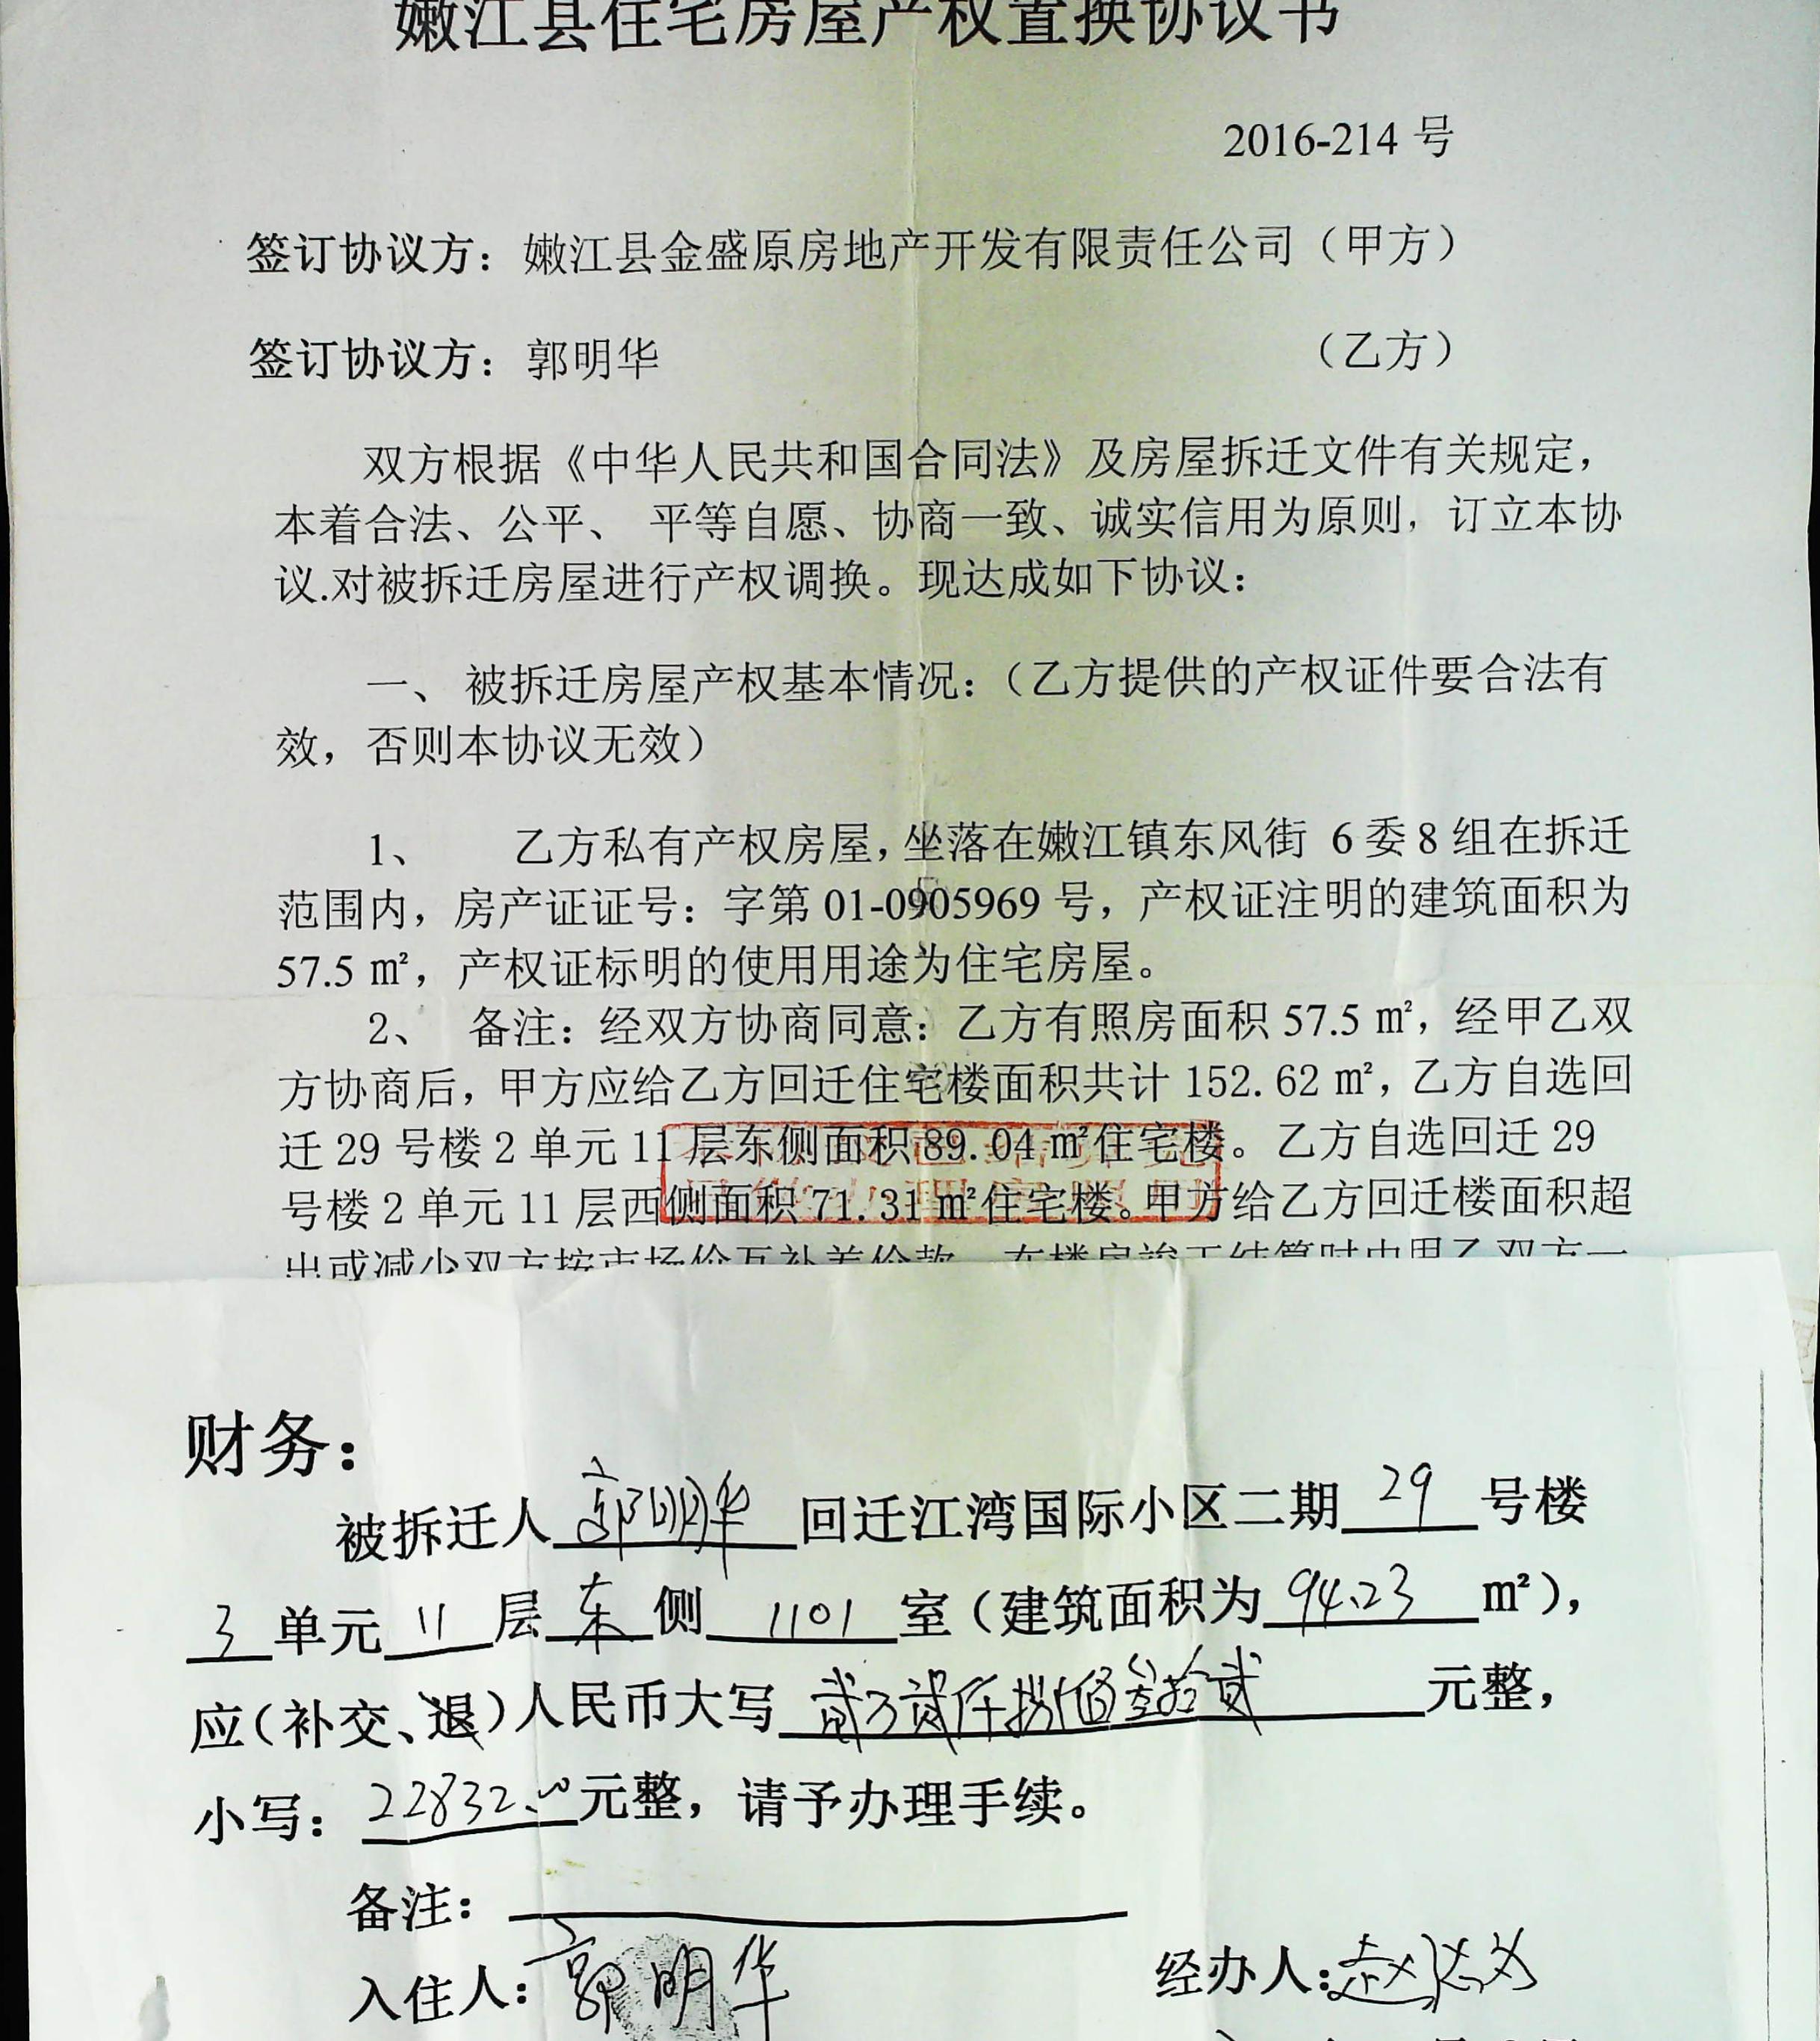 嫩江县住宅房屋产权置换协议书
2016-214 号
签订协议方：嫩江县金盛原房地产开发有限责任公司（甲方）
签订协议方：郭明华 （乙方）
双方根据《中华人民共和国合同法》及房屋拆迁文件有关规定，
本着合法、公平、 平等自愿、协商一致、诚实信用为原则，订立本协
议.对被拆迁房屋进行产权调换。现达成如下协议：
一、 被拆迁房屋产权基本情况：（乙方提供的产权证件要合法有
效，否则本协议无效）
1、 乙方私有产权房屋，坐落在嫩江镇东风街 6委8组在拆迁
范围内，房产证证号：字第 01-0905969 号，产权证注明的建筑面积为
57.5 ㎡，产权证标明的使用用途为住宅房屋。
2、 备注：经双方协商同意：乙方有照房面积 57.5 ㎡，经甲乙双
方协商后，甲方应给乙方回迁住宅楼面积共计 152.62 ㎡，乙方自选回
迁 29 号楼 2 单元 11 层东侧面积 89.04 ㎡住宅楼。乙方自选回迁 29
号楼 2 单元 11 层西侧面积 71.31 ㎡住宅楼。甲方给乙方回迁楼面积超
出或减少双方按市场价互补差价款，在楼房竣工结算时由甲乙双方一
财务：
被拆迁人郭明华回迁江湾国际小区二期29号楼
3单元11层东侧1101室（建筑面积为94.23㎡），
应（补交、退）人民币大写贰万贰仟捌佰叁拾贰元整，
小写：22832.00元整，请予办理手续。
备注：
入住人：郭明华 经办人：